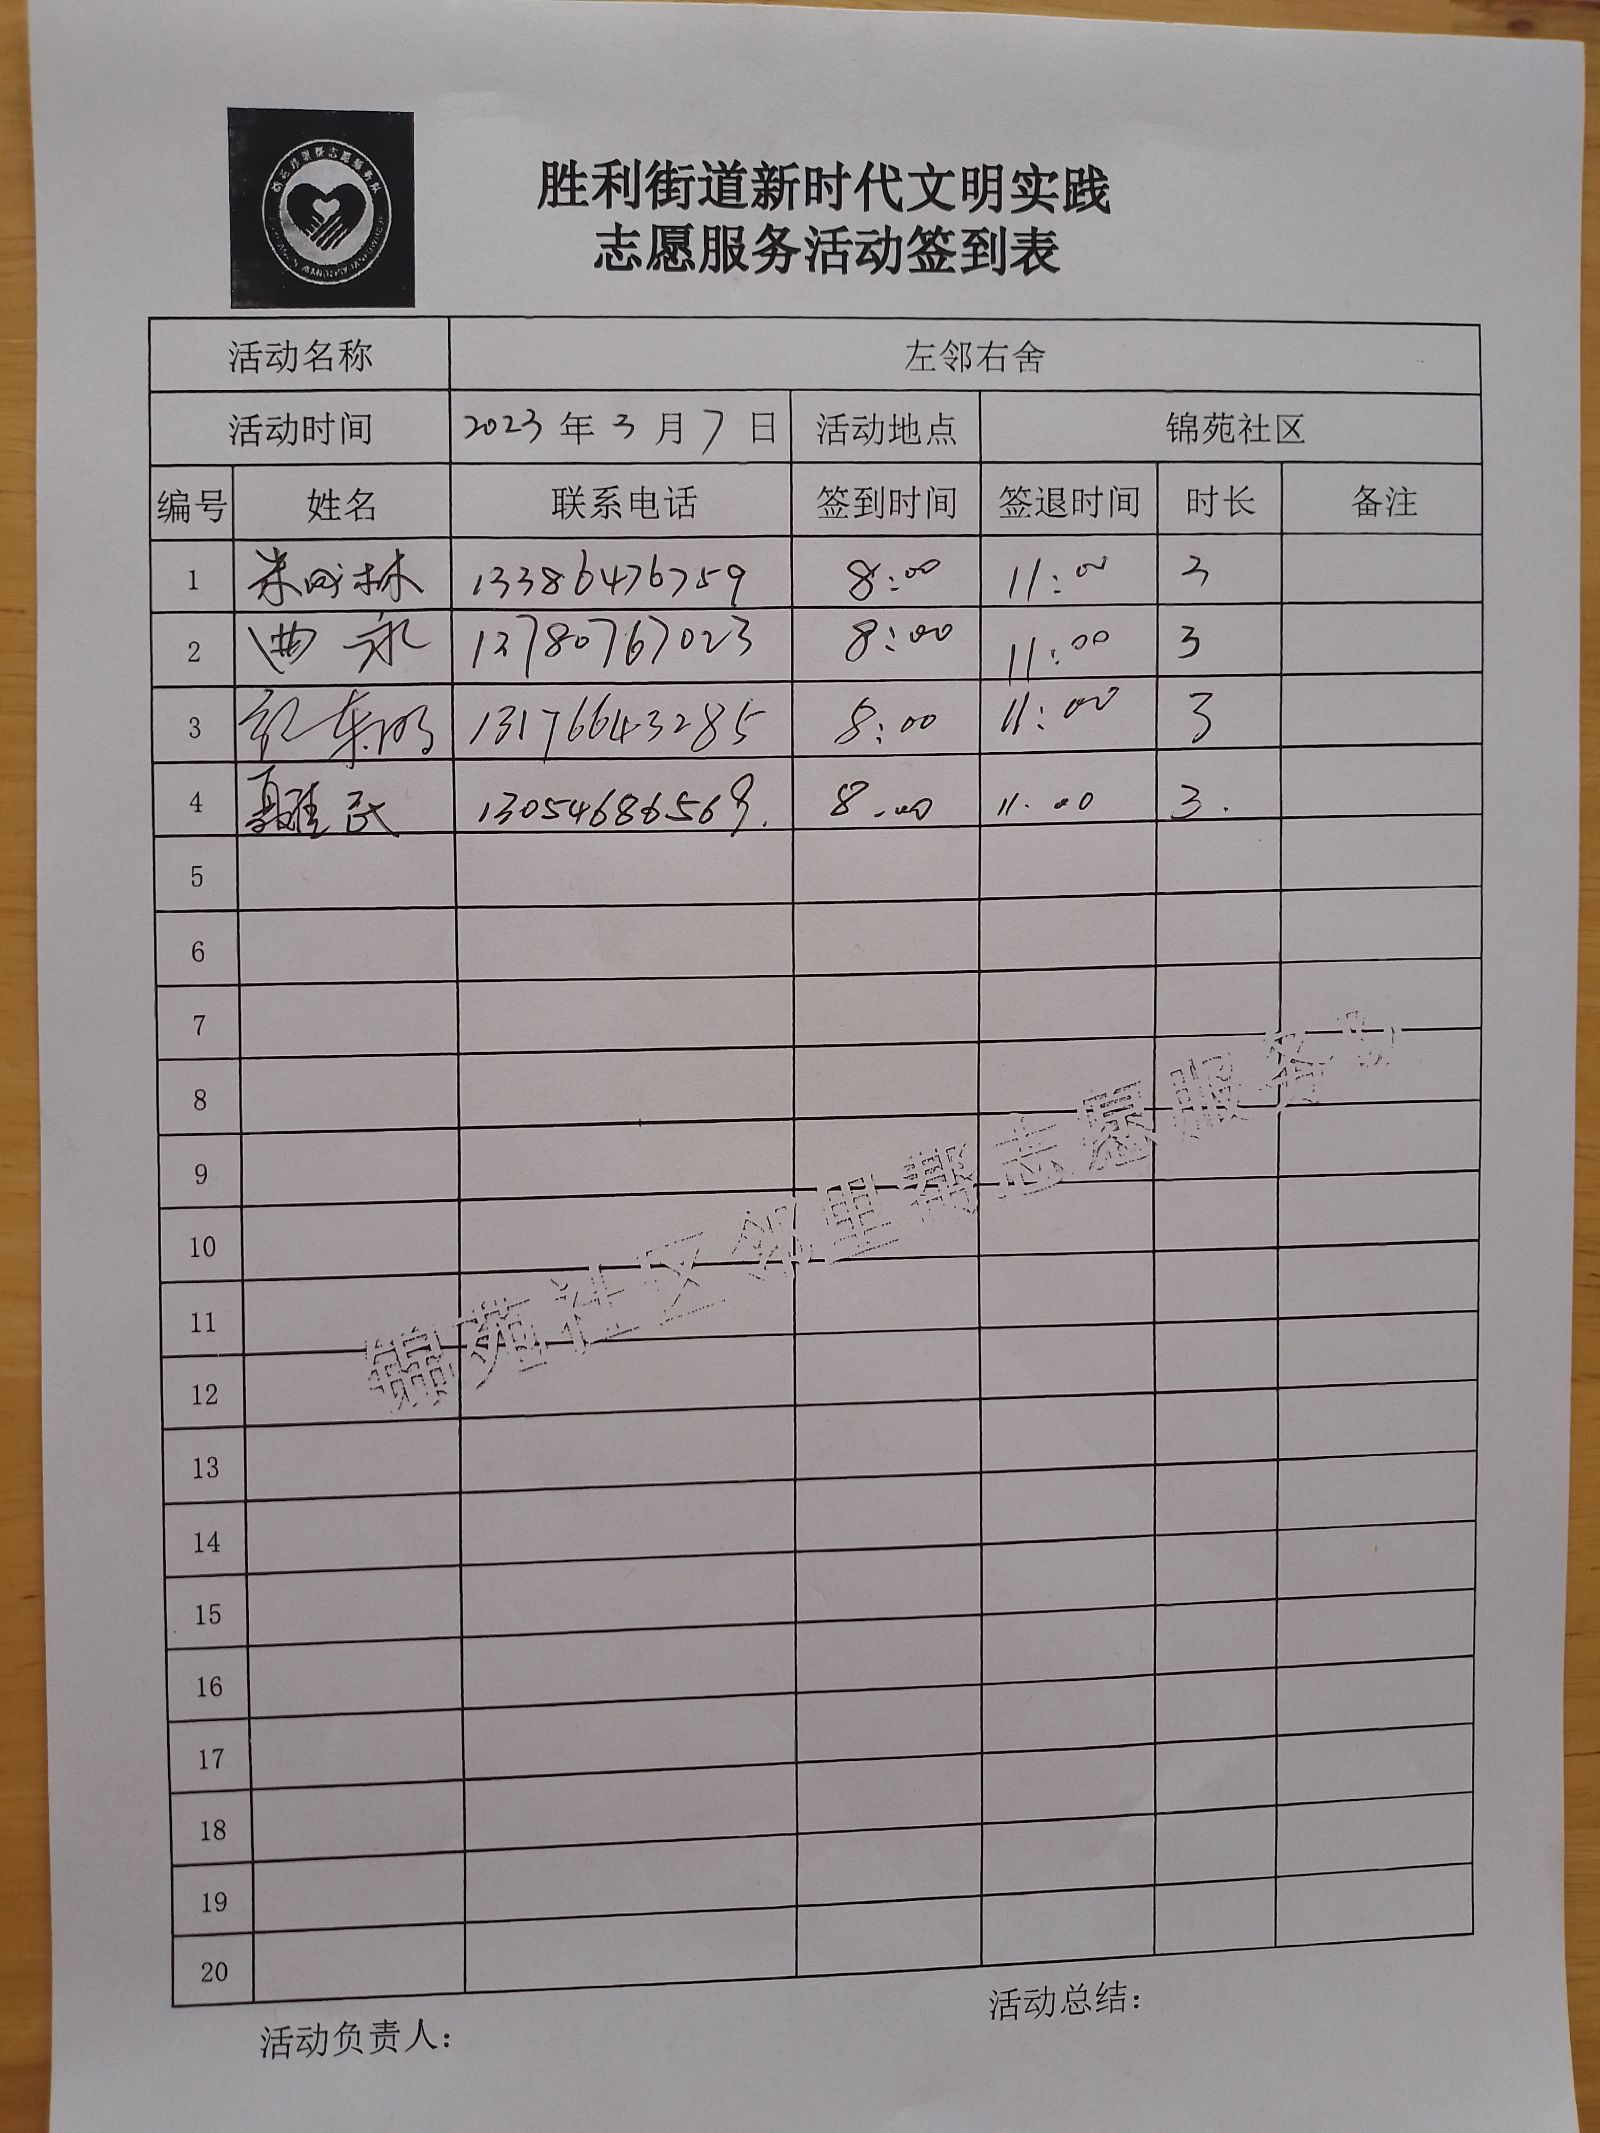 胜利街道新时代文明实践
志愿服务活动签到表
活动名称 左邻右舍
活动时间 2023年3月7日 活动地点 锦苑社区
编号 姓名 联系电话 签到时间 签退时间 时长 备注
1 13386476759 8:00 11:00 3
2 曲永 13780767023 8:00 11:00 3
3 13176643285 8:00 11:00 3
4 民 13054686569. 8.00 11.00 3.
5
6
7
8
9
10
11
12
13
14
15
16
17
18
19
20
锦苑社区邻里帮志愿服务队
活动负责人：
活动总结：